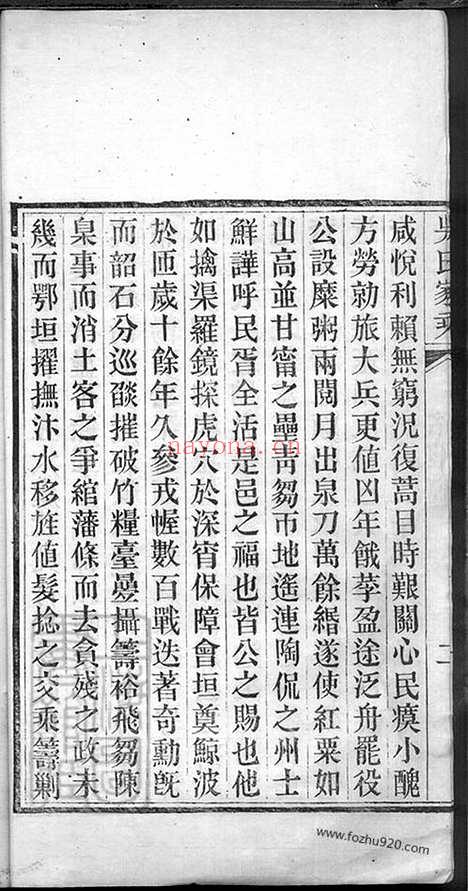 吳氏家乘
二
咸悅利賴無窮況復蒿目時艱關心民瘼小醜
方勞勍旅大兵更值凶年餓莩盈途泛舟罷役
公設糜粥兩閱月出泉刀萬餘緡遂使紅粟如
山高並甘甯之壘靑芻帀地遙連陶侃之州士
鮮譁呼民胥全活是邑之福也皆公之賜也他
如擒渠羅鏡探虎穴於深宵保障會垣奠鯨波
於匝歲十餘年久參戎幄數百戰迭著奇勳旣
而韶石分巡燄摧破竹糧臺晏攝籌裕飛芻陳
臬事而消土客之爭綰藩條而去貪殘之政未
幾而鄂垣擢撫汴水移旌値髮捻之交乘籌剿
nayona.cn
www.fozhu920.com